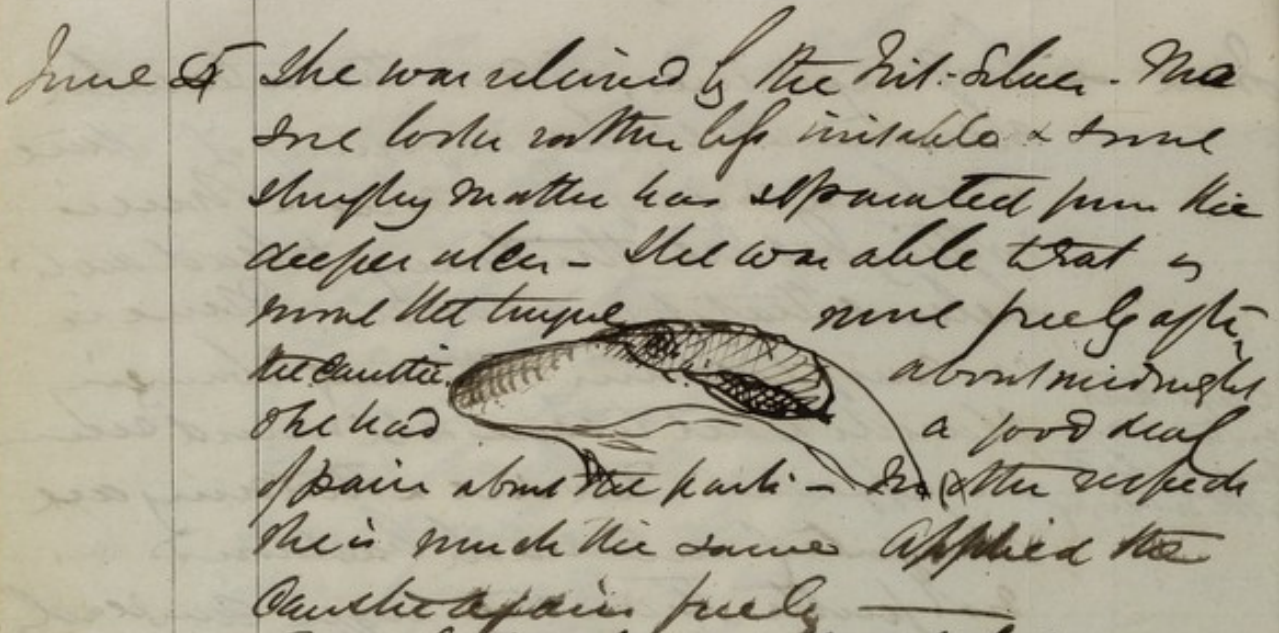 June 5 She was relieved by the Nit: Silver. The
sore looks rather less irritable & some
sloughy matter has separated from the
deeper ulcer - She was able to eat &
move the tongue more freely after
the caustic. about midnight
she had a good deal
of pain about the parts - In other respects
she is much the same Applied the
Caustic again freely